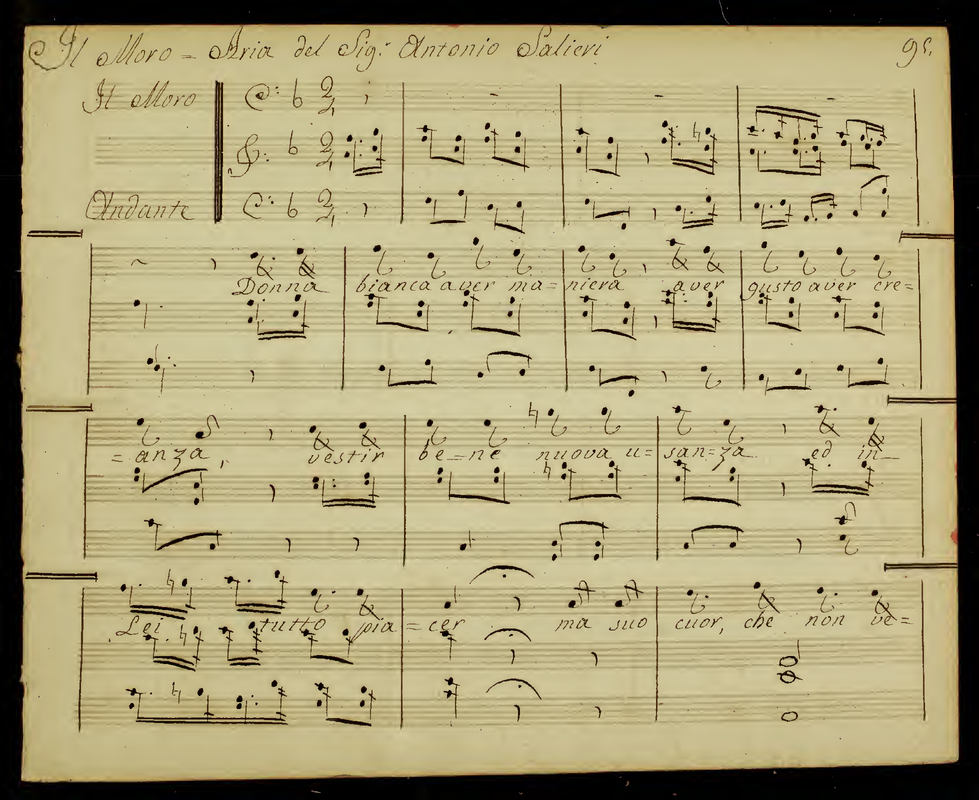 Il Moro = Aria del Sig.r Antonio Salieri 95.
Il Moro
Andante
Donna bianca aver ma= niera aver gusto aver cre=
= anza, vestir be=ne nuova u= san=za ed in=
Lei tutto pia = cer ma suo cuor, che non ve=